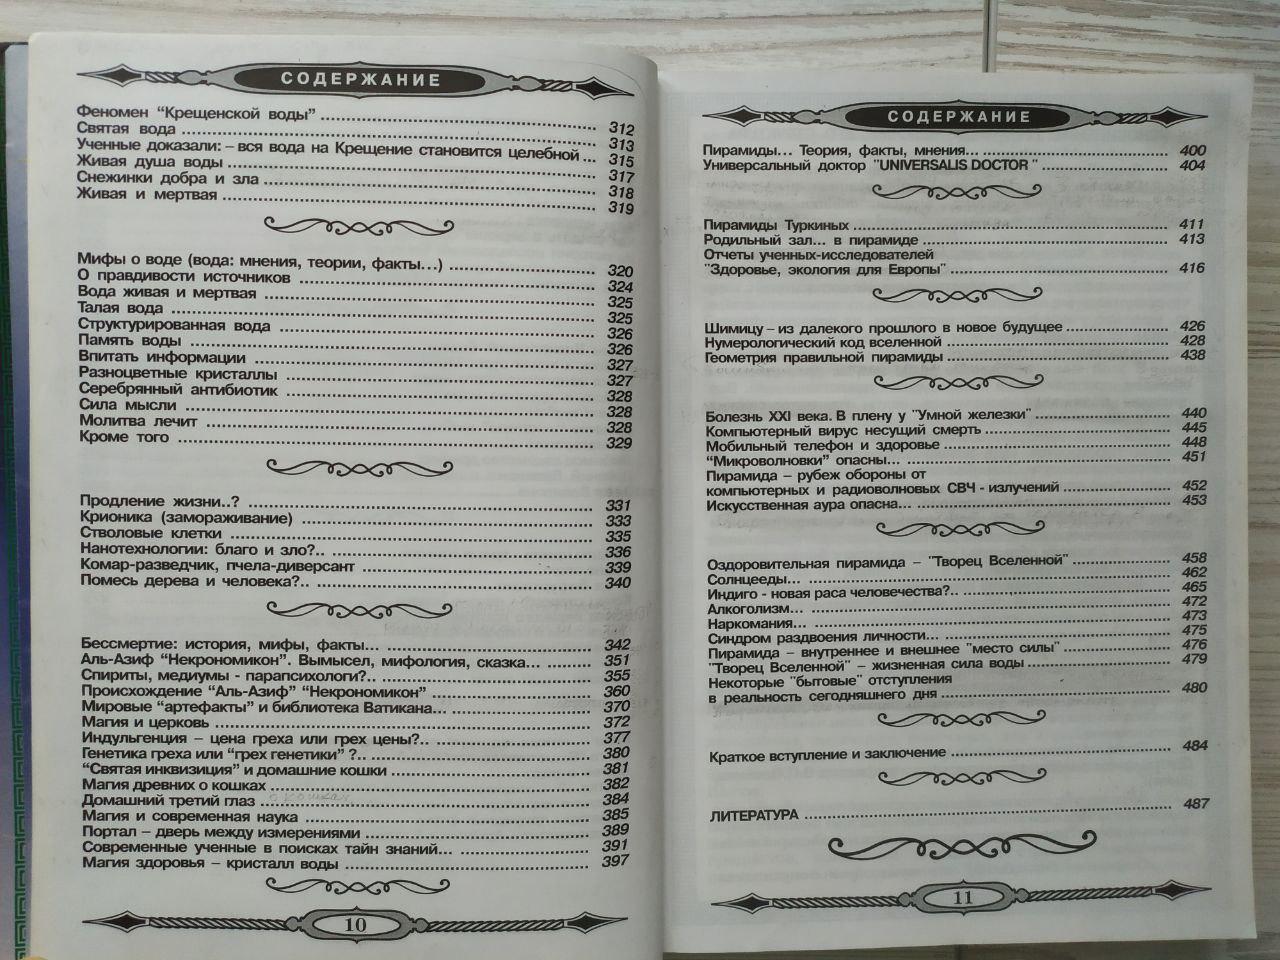 СОДЕРЖАНИЕ
Феномен “Крещенской воды” ........ 312
Святая вода ........ 313
Ученные доказали: – вся вода на Крещение становится целебной ... 315
Живая душа воды ........ 317
Снежинки добра и зла ........ 318
Живая и мертвая ........ 319
Мифы о воде (вода: мнения, теории, факты...) ........ 320
О правдивости источников ........ 324
Вода живая и мертвая ........ 325
Талая вода ........ 325
Структурированная вода ........ 326
Память воды ........ 326
Впитать информации ........ 327
Разноцветные кристаллы ........ 327
Серебрянный антибиотик ........ 328
Сила мысли ........ 328
Молитва лечит ........ 328
Кроме того ........ 329
Продление жизни..? ........ 331
Крионика (замораживание) ........ 333
Стволовые клетки ........ 335
Нанотехнологии: благо и зло?.. ........ 336
Комар-разведчик, пчела-диверсант ........ 339
Помесь дерева и человека?.. ........ 340
Бессмертие: история, мифы, факты... ........ 342
Аль-Азиф “Некрономикон”. Вымысел, мифология, сказка... ........ 351
Спириты, медиумы - парапсихологи?.. ........ 355
Происхождение “Аль-Азиф” “Некрономикон” ........ 360
Мировые “артефакты” и библиотека Ватикана... ........ 370
Магия и церковь ........ 372
Индульгенция – цена греха или грех цены?.. ........ 377
Генетика греха или “грех генетики” ?.. ........ 380
“Святая инквизиция” и домашние кошки ........ 381
Магия древних о кошках ........ 382
Домашний третий глаз ........ 384
о кошках
Магия и современная наука ........ 385
Портал – дверь между измерениями ........ 389
Современные ученные в поисках тайн знаний... ........ 391
Магия здоровья – кристалл воды ........ 397
10
СОДЕРЖАНИЕ
Пирамиды... Теория, факты, мнения... ........ 400
Универсальный доктор "UNIVERSALIS DOCTOR " ........ 404
Пирамиды Туркиных ........ 411
Родильный зал... в пирамиде ........ 413
Отчеты ученных-исследователей
"Здоровье, экология для Европы" ........ 416
Шимицу – из далекого прошлого в новое будущее ........ 426
Нумерологический код вселенной ........ 428
Геометрия правильной пирамиды ........ 438
Болезнь XXI века. В плену у "Умной железки" ........ 440
Компьютерный вирус несущий смерть ........ 445
Мобильный телефон и здоровье ........ 448
“Микроволновки” опасны... ........ 451
Пирамида – рубеж обороны от
компьютерных и радиоволновых СВЧ - излучений ........ 452
Искусственная аура опасна... ........ 453
Оздоровительная пирамида – "Творец Вселенной" ........ 458
Солнцееды... ........ 462
Индиго - новая раса человечества?.. ........ 465
Алкоголизм... ........ 472
Наркомания... ........ 473
Синдром раздвоения личности... ........ 475
Пирамида – внутреннее и внешнее "место силы" ........ 476
"Творец Вселенной" – жизненная сила воды ........ 479
Некоторые "бытовые" отступления
в реальность сегодняшнего дня ........ 480
Краткое вступление и заключение ........ 484
ЛИТЕРАТУРА ........ 487
11